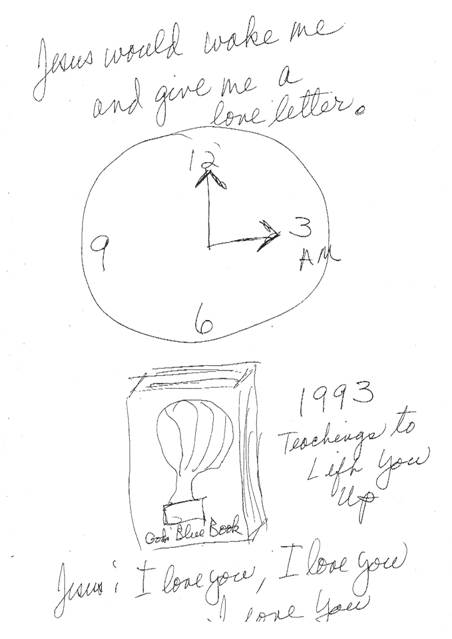 Jesus would wake me
and give me a
love letter.
12
9
3
AM
6
1993
Teachings to
Lift You
Up
God's Blue Book
Jesus: I love you, I love you
I love You